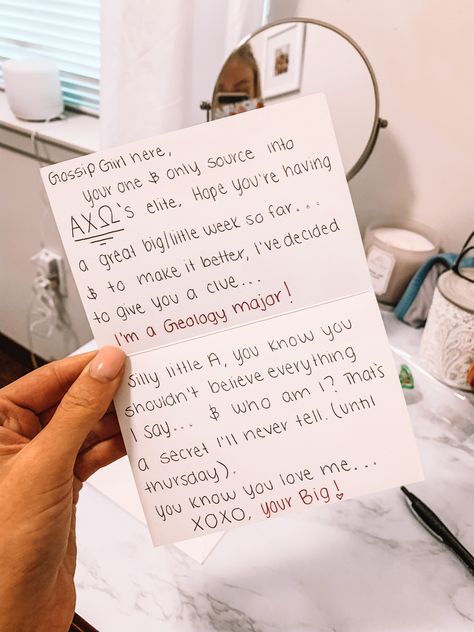 Gossip Girl here,
your one & only source into
ΑΧΩ's elite. Hope you're having
a great big/little week so far...
& to make it better, I've decided
to give you a clue...
I'm a Geology major!
Silly little A, you know you
shouldn't believe everything
I say... & who am I? That's
a secret I'll never tell. (until
thursday).
you know you love me...
XOXO, your Big!